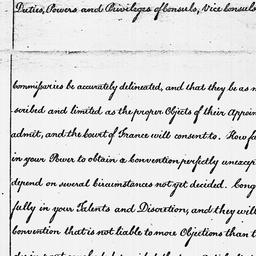 Duties, Powers and Privileges of Consuls, Vice Consuls
Commissaries be accurately delineated, and that they be as
scribed and limited as the proper Objects of their Appoin
admit, and the Court of France will consent to. How fa
in your Power to obtain a Convention perfectly unexcep
depend on several Circumstances not yet decided. Cong
fully in your Talents and Discretion, and they will
Convention that is not liable to more Objections than t